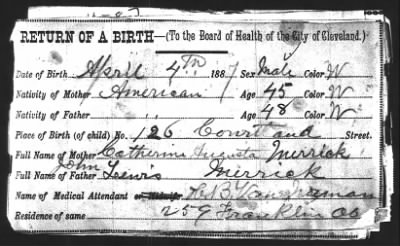 RETURN OF A BIRTH—(To the Board of Health of the City of Cleveland.)
Date of Birth April 4TH 1887 Sex Male Color W
Nativity of Mother American Age 45 Color W
Nativity of Father " Age 48 Color W
Place of Birth (of child) No. 126 Court Street.
Full Name of Mother Catherine Augusta Merrick
Full Name of Father John Lewis Merrick
Name of Medical Attendant or Midwife
Residence of same 259 Franklin